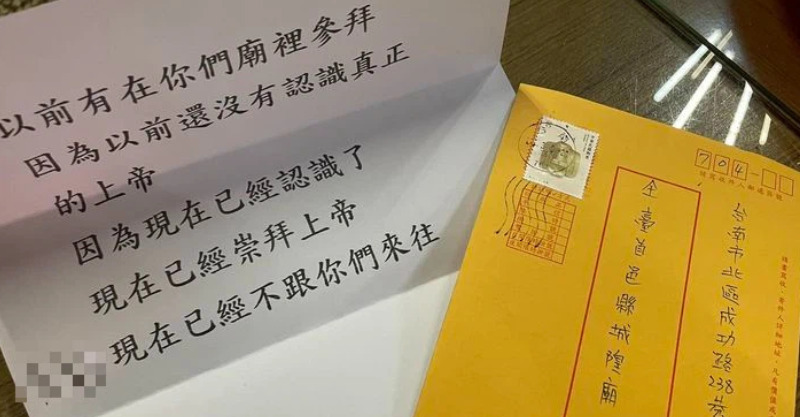 以前有在你們廟裡參拜
因為以前還沒有認識真正
的上帝
因為現在已經認識了
現在已經崇拜上帝
現在已經不跟你們來往
704-
台南市北區成功路238巷
全臺首邑縣城隍廟